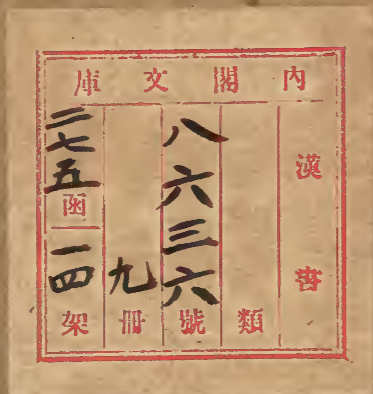 內閣文庫
漢書
類
八六三六號
九冊
二七五函
一四架